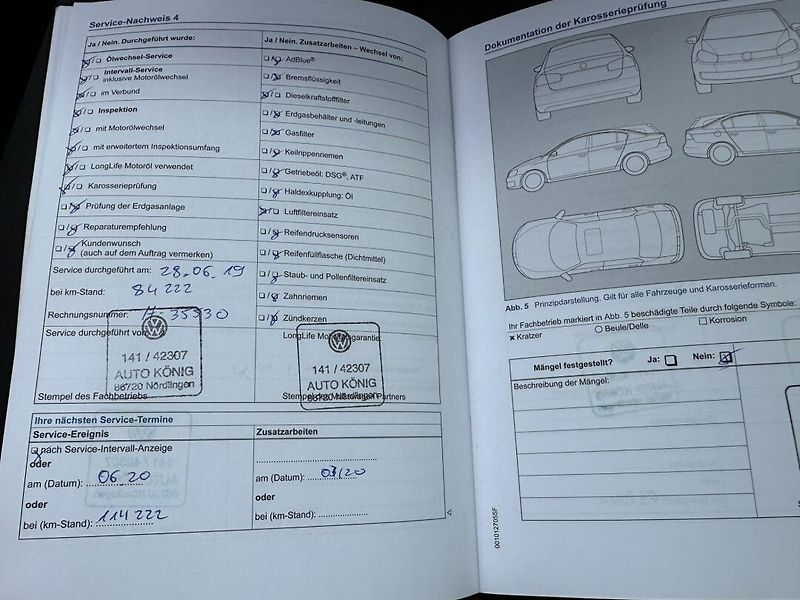 Service-Nachweis 4
Ja / Nein. Durchgeführt wurde:
Ölwechsel-Service
Intervall-Service
inklusive Motorölwechsel
im Verbund
Inspektion
mit Motorölwechsel
mit erweitertem Inspektionsumfang
LongLife Motoröl verwendet
Karosserieprüfung
Prüfung der Erdgasanlage
Reparaturempfehlung
Kundenwunsch
(auch auf dem Auftrag vermerken)
Service durchgeführt am: 28.06.19
bei km-Stand: 84 222
Rechnungsnummer:
Service durchgeführt von:
141 / 42307
AUTO KÖNIG
86720 Nördlingen
Stempel des Fachbetriebs
Ja / Nein. Zusatzarbeiten – Wechsel von:
AdBlue®
Bremsflüssigkeit
Dieselkraftstofffilter
Erdgasbehälter und -leitungen
Gasfilter
Keilrippenriemen
Getriebeöl: DSG®, ATF
Haldexkupplung: Öl
Luftfiltereinsatz
Reifendrucksensoren
Reifenfüllflasche (Dichtmittel)
Staub- und Pollenfiltereinsatz
Zahnriemen
Zündkerzen
LongLife Mobilitätsgarantie:
141 / 42307
AUTO KÖNIG
86720 Nördlingen
Ihre nächsten Service-Termine
Service-Ereignis
nach Service-Intervall-Anzeige
oder
am (Datum): 06.20
oder
bei (km-Stand): 114 222
Zusatzarbeiten
am (Datum): 03/20
oder
bei (km-Stand):
Dokumentation der Karosserieprüfung
Abb. 5 Prinzipdarstellung. Gilt für alle Fahrzeuge und Karosserieformen.
Ihr Fachbetrieb markiert in Abb. 5 beschädigte Teile durch folgende Symbole:
Kratzer
Beule/Delle
Korrosion
Mängel festgestellt? Ja: Nein:
Beschreibung der Mängel:
001012705SF